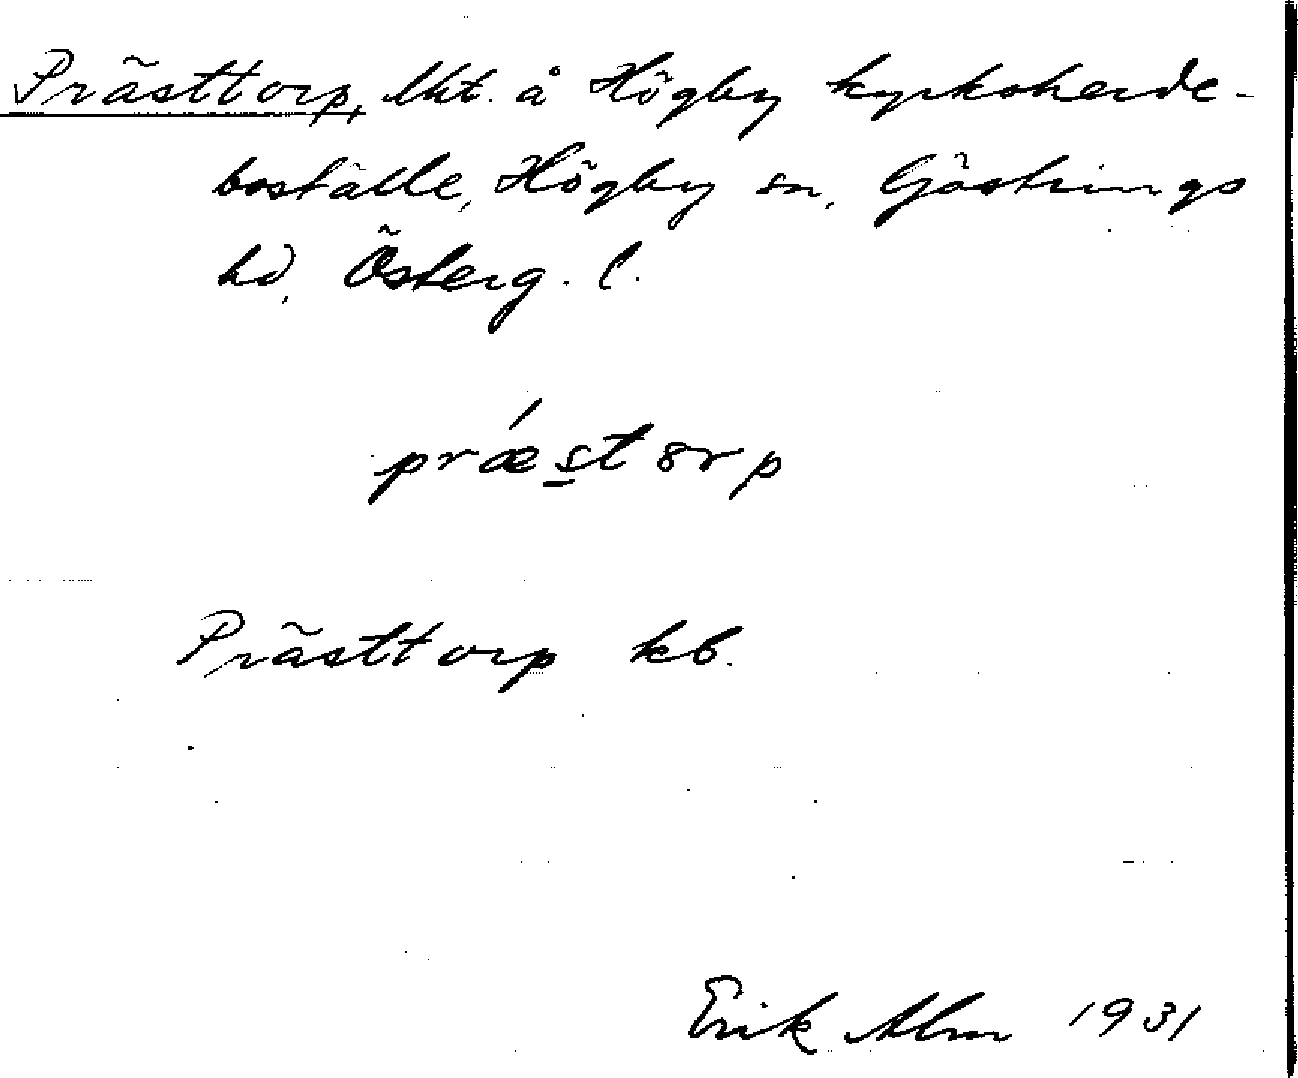 Prästtorp, lht. å Högby kyrkoherde-
boställe, Högby sn, Göstrings
hd, Österg. l.
prǽst8rp
Prästtorp kb.
Erik Alm 1931